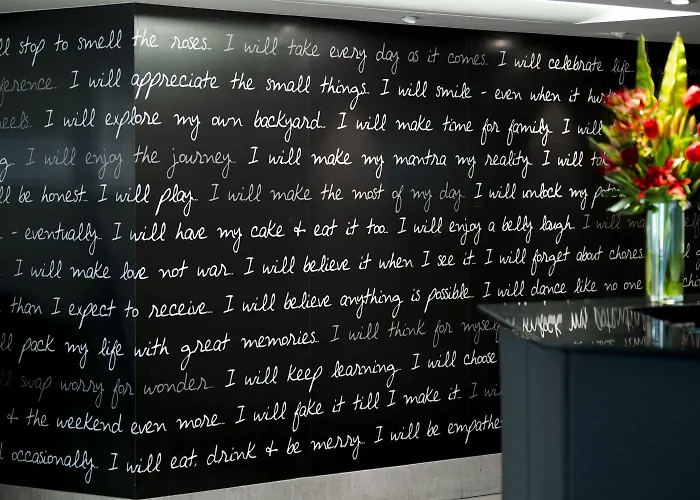 stop to smell the roses. I will take every day as it comes. I will celebrate life
I will appreciate the small things. I will smile - even when it
I will explore my own backyard. I will make time for family. I will
I will enjoy the journey. I will make my mantra my reality. I will
be honest. I will play. I will make the most of my day. I will unlock my
- eventually. I will have my cake + eat it too. I will enjoy a belly laugh. I will
I will make love not war. I will believe it when I see it. I will forget about chores.
than I expect to receive. I will believe anything is possible. I will dance like no one
pack my life with great memories. I will think for myself
swap worry for wonder. I will keep learning. I will choose
+ the weekend even more. I will fake it till I make it. I
occasionally. I will eat, drink + be merry. I will be